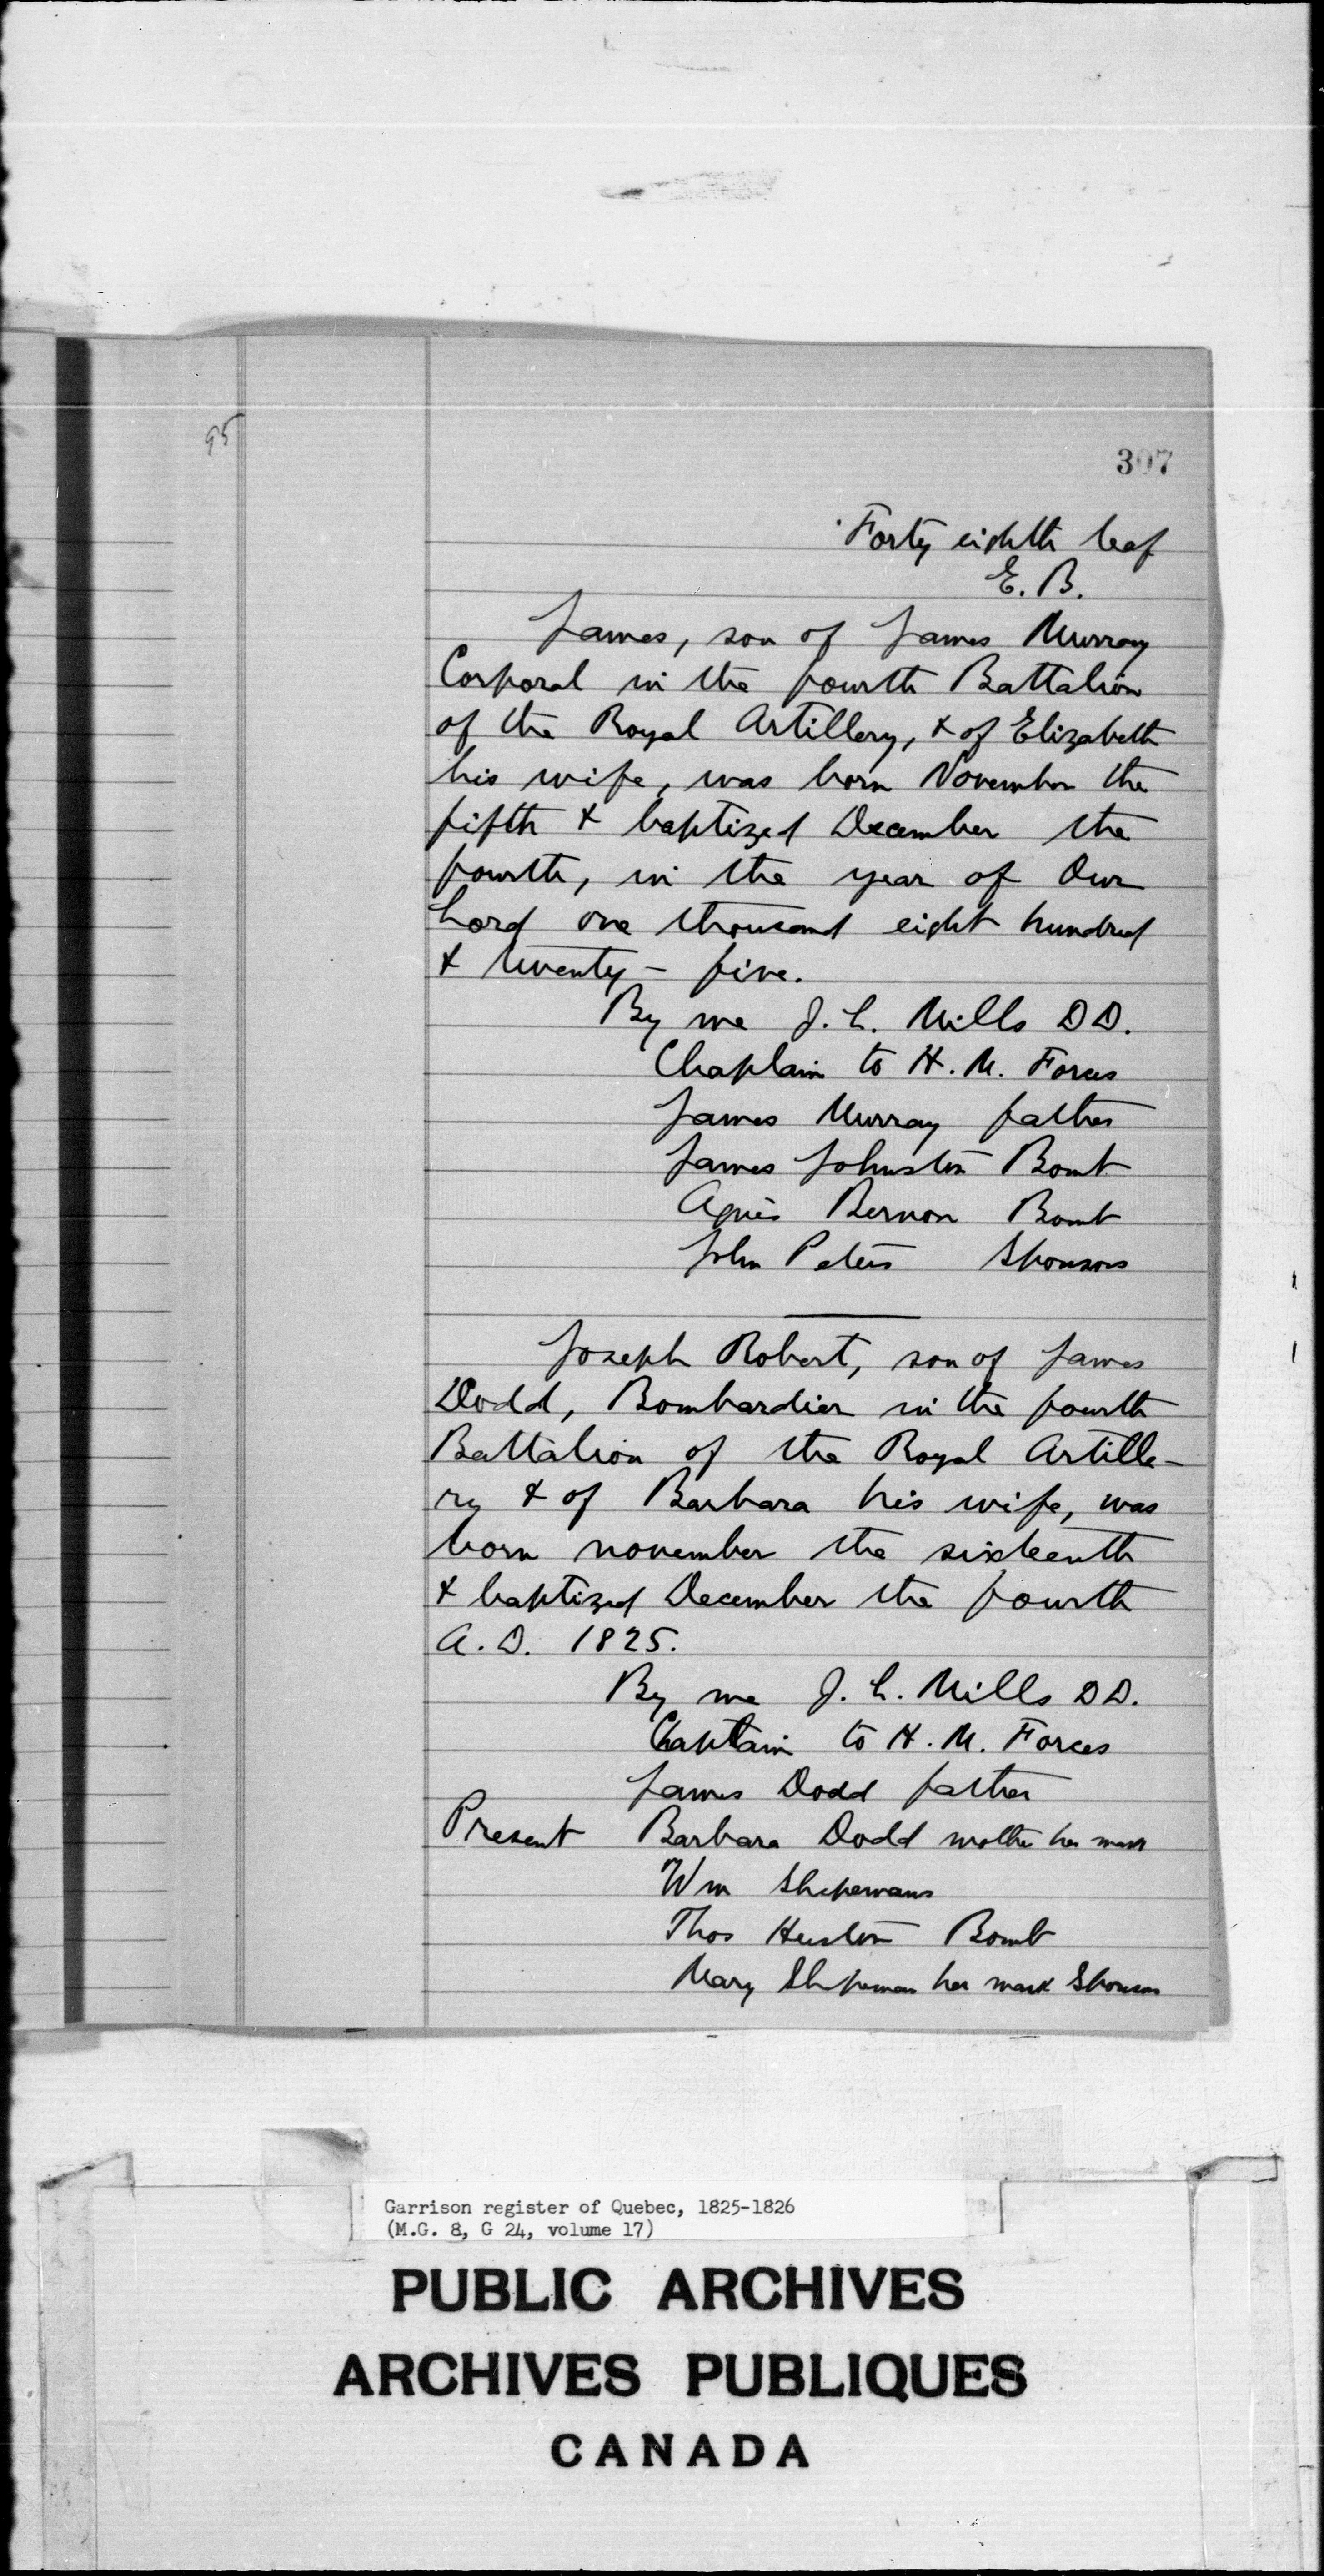 95
307
Forty eighth leaf
E. B.
James, son of James Murray
Corporal in the fourth Battalion
of the Royal Artillery, & of Elizabeth
his wife, was born November the
fifth & baptized December the
fourth, in the year of Our
Lord one thousand eight hundred
& twenty - five.
By me J. L. Mills D D.
Chaplain to H. M. Forces
James Murray father
James Johnston Bomb
Agnes Bernon Bomb
John Peters Sponsors
Joseph Robert, son of James
Dodd, Bombardier in the fourth
Battalion of the Royal Artille-
ry & of Barbara his wife, was
born november the sixteenth
& baptized December the fourth
A. D. 1825.
By me J. L. Mills D D.
Chaplain to H. M. Forces
James Dodd father
Present Barbara Dodd mother her mark
Wm
Thos Huston Bomb
Mary her mark Sponsors
Garrison register of Quebec, 1825-1826
(M.G. 8, G 24, volume 17)
PUBLIC ARCHIVES
ARCHIVES PUBLIQUES
CANADA